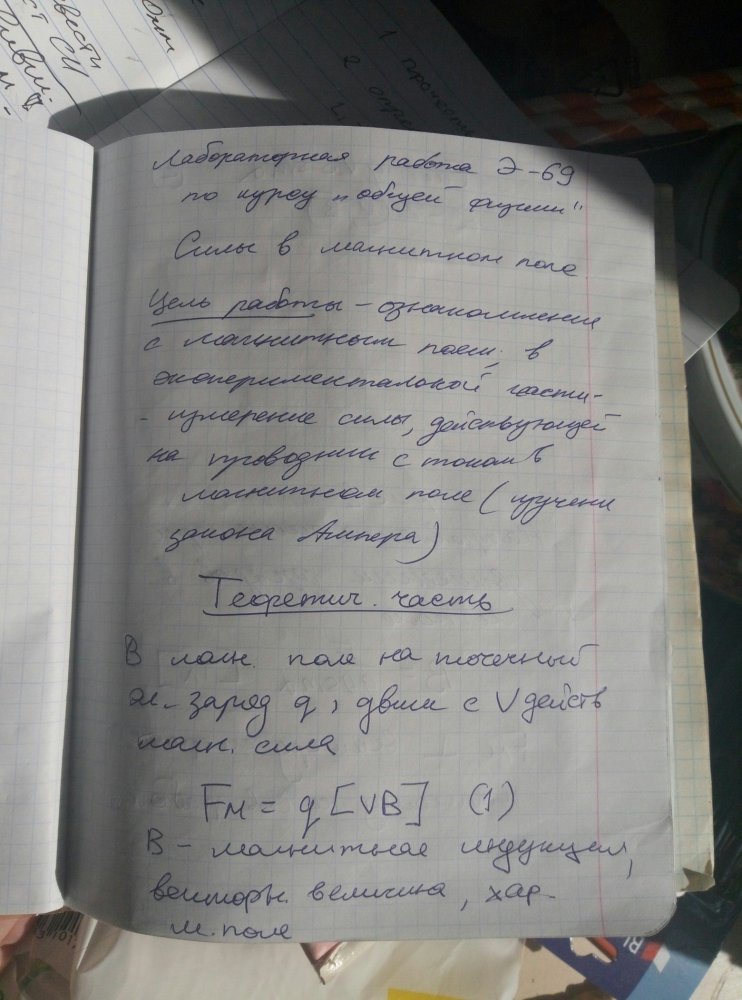 вести
ст СИ
1 Прочесть
2 опре
Лабораторная работа Э-69
по курсу „общей физики"
Силы в магнитном поле
Цель работы – ознакомление
с магнитным полем; в
экспериментальной части-
- измерение силы, действующей
на проводник с током в
магнитном поле (изучени
закона Ампера)
Теоретич. часть
В магн. поле на точечный
эл. заряд q, движ с V действ
магн. сила
Fм = q [VB] (1)
B – магнитная индукция,
векторн. величина, хар-
м. поле